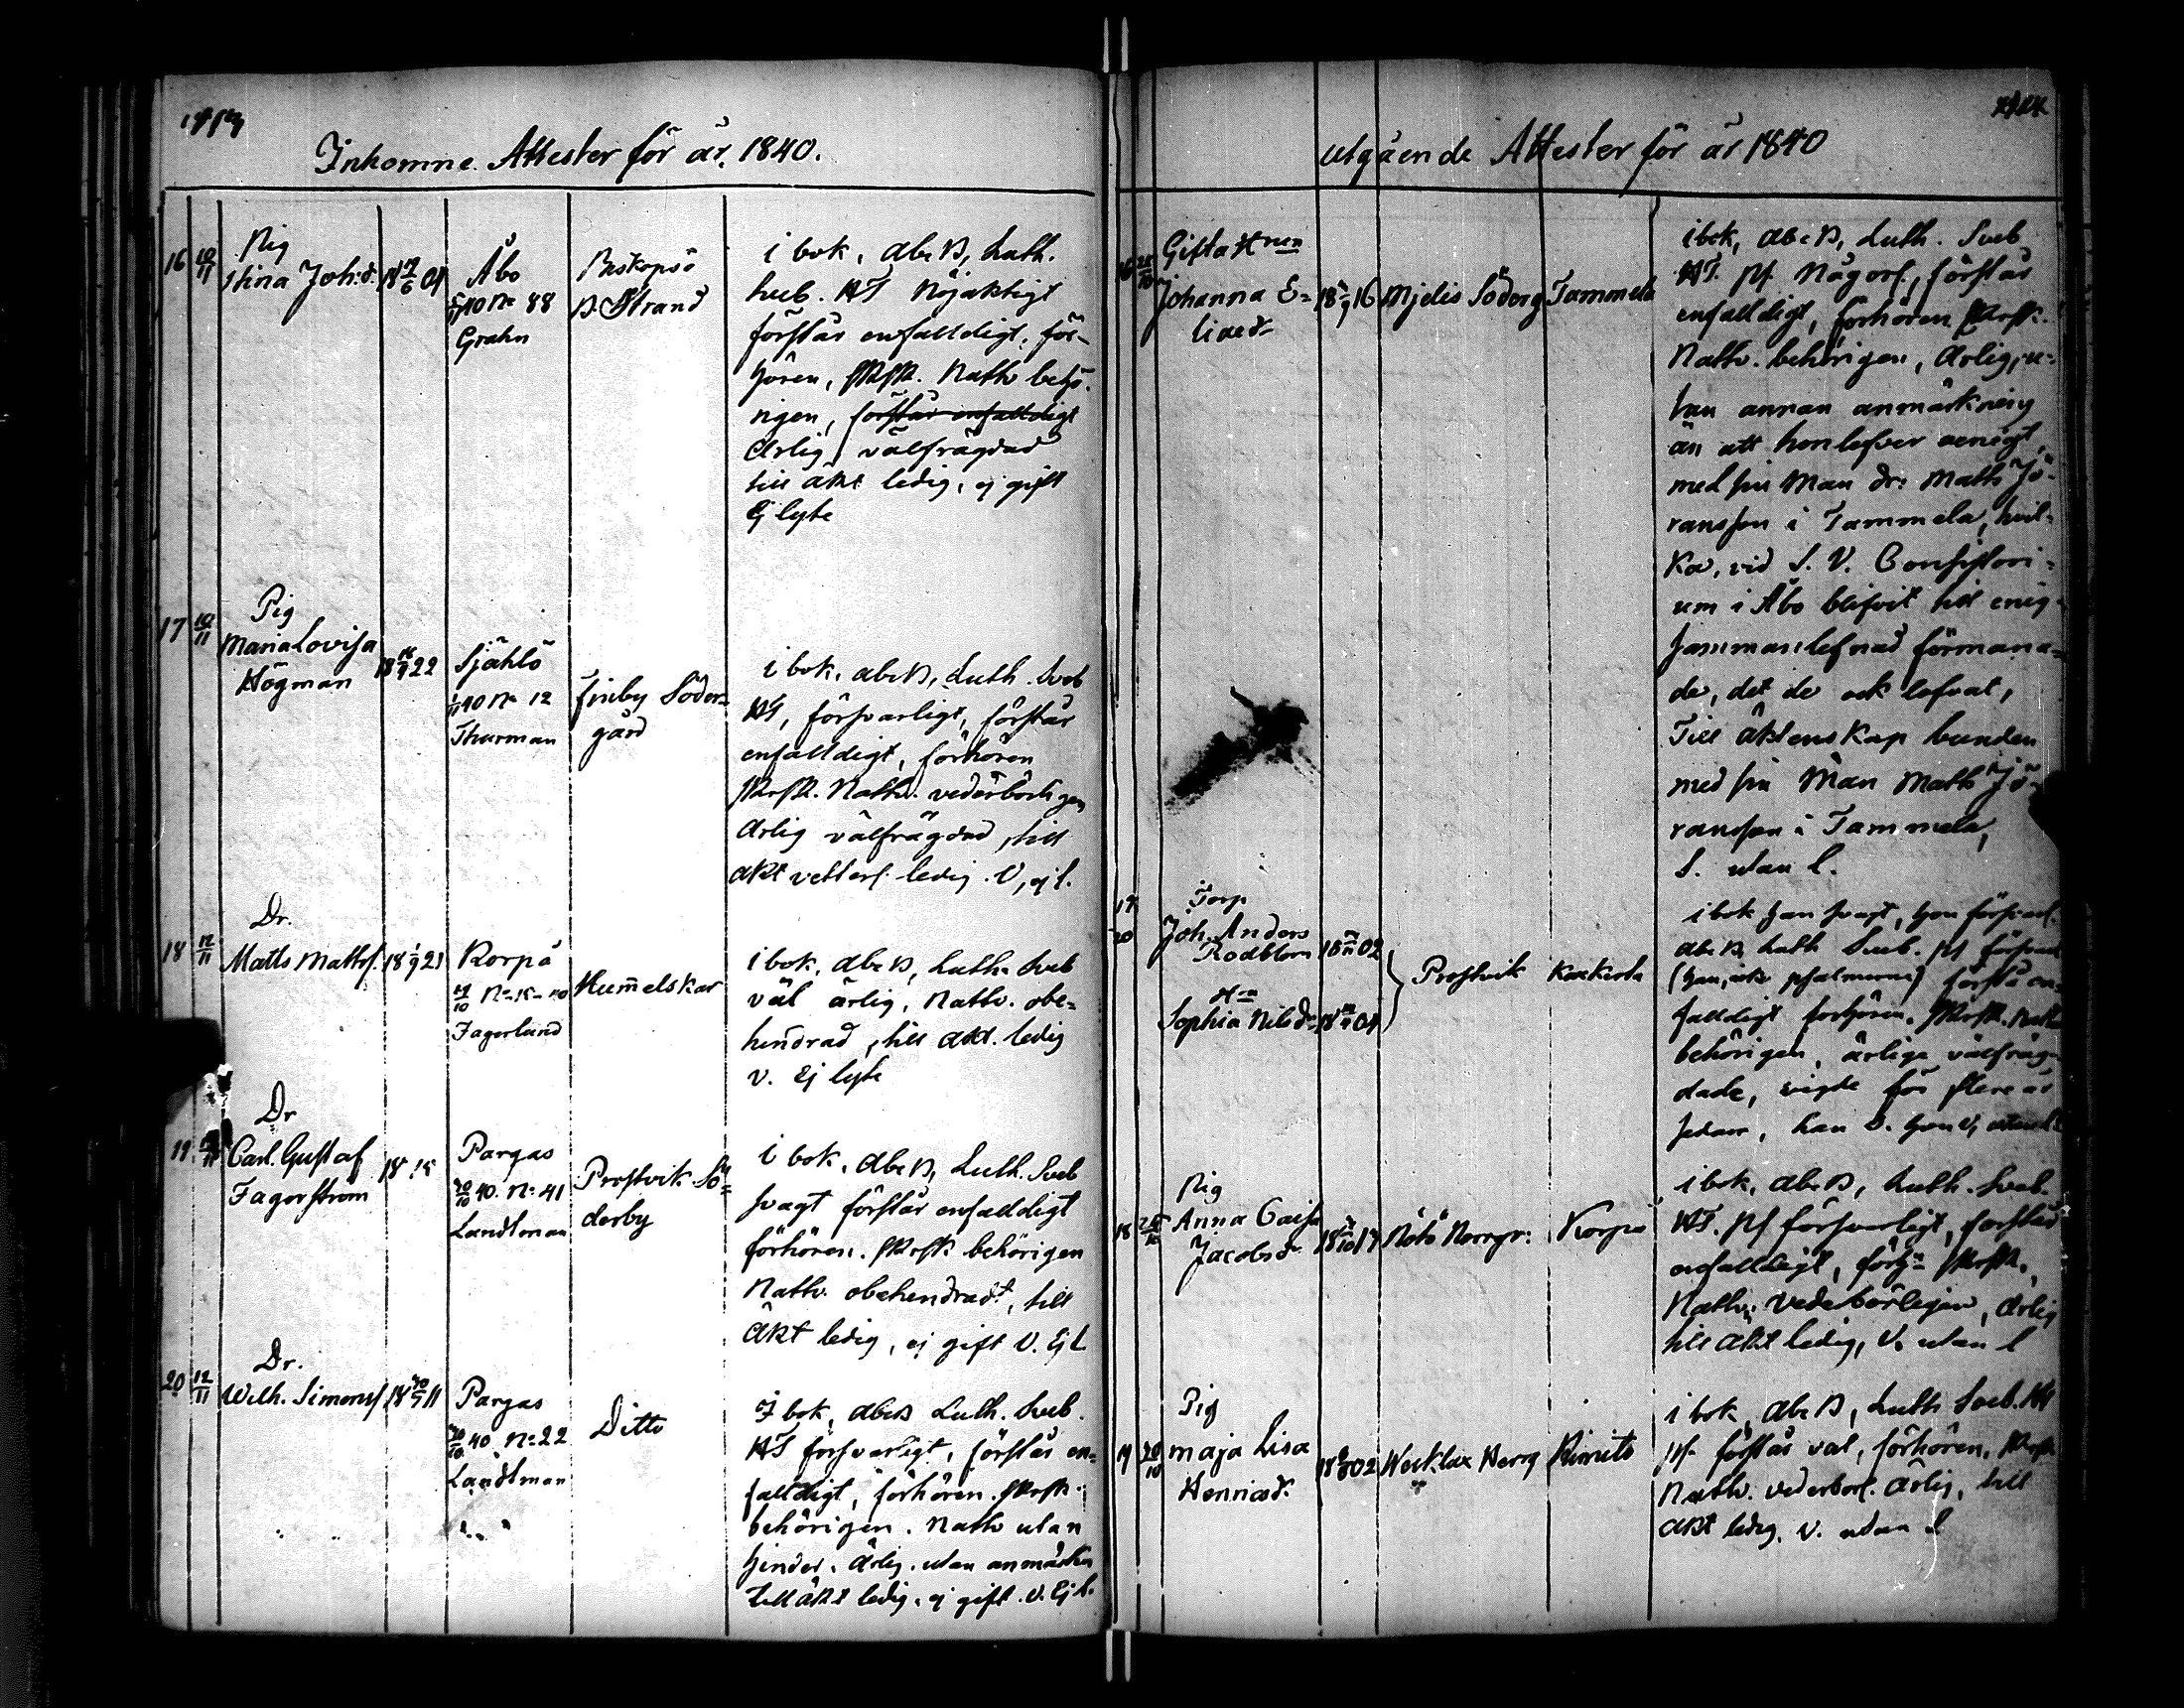 Inkomne Attester för år 1840.
16 10/11
Pig
Stina Joh:d.
Åbo
40 No 88
Grahn
Biskopsö
B. Strand
i bok, abcB, Luth.
Sveb. HT Nöjaktigt
förstår enfalldigt, för-
hören, SkrSk. Nattv behö-
rigen, förstår enfalldigt
Ärlig välfrägdad
till äkt ledig, ej gift
Ej lyte
17 10/11
Pig
Maria Lovisa
Högman
Själö
40 No 12
Thurman
Finby Söder-
gård
i bok, abcB, Luth. Sveb
HT, försvarligt, förstår
enfalldigt, förhören
SkrSk. Nattv. vederbörligen
Ärlig välfrägdad, till
äkt vetterl. ledig. V, ej l.
18 12/11
Dr.
Matts Mattss.
Korpå
Fagerlund
Hummelskär
i bok, abcB, Luth. Sveb
väl ärlig, Nattv. obe-
hindrad, till äkt. ledig
v. Ej lyte
19
Dr
Carl Gustaf
Fagerström
Pargas
40. No 41
Landtman
Prostvik Sö-
derby
i bok, abcB, Luth. Sveb
svagt förstår enfalldigt
förhören. SkrSk behörigen
Nattv. obehindradt, till
Äkt ledig, ej gift V. Ej l
20 12/11
Dr.
Wilh. Simonss
Pargas
40 No 22
Landtman
Ditto
I bok, abcB Luth. Sveb.
HT försvarligt, förstår en-
falldigt, förhören. SkrSk.
behörigen. Nattv utan
hinder. Ärlig. utan anmärkn
till äkt ledig. ej gift. V. Ej l.
utgående Attester för år 1840
16
Gifta Hun
Johanna E-
liaed-
16
Mjelis Söderg
Tammela
i bok, abcB, Luth. Sveb
HT. pf. Någorl., förstår
enfalldigt, förhören SkrSk.
Nattv. behörigen, Ärlig, u-
tan annan anmärkning
än att hon lefver oenigt
med sin Man Dr: Matts Jö-
ransson i Tammela, hvil-
ka, vid S. V. Consistori-
um i Åbo blifvit till enig
sammanlefnad förmana-
de, det de ock lofvat,
Till äktenskap bunden
med sin Man Matts Jö-
ransson i Tammela,
S. utan l.
17
20
Torp
Joh. Anders
Rodblom
02
Hn
Sophia Nilsd-
04
Prostvik
Kakerta
i bok han svagt, hon försvarl.
abcB Luth Sveb. pf
(han, ock psalmerna) förstå en-
falldigt förhören. SkrSk. Nattv
behörigen, ärliga välfräg-
dade, vigde för flere år
sedan, han S. hon V, utan l
18
Pig
Anna Caisa
Jacobsd-
Nötö Norrg:
Korpå
i bok, abcB, Luth. Sveb.
HT. pf försvarligt, förstår
enfalldigt, förhn SkrSk.
Nattv. vederbörligen, ärlig
till äkt ledig, V. utan l
19 20/10
Pig
Maja Lisa
Henricsd.
02
Rimito
i bok, abcB, Luth Sveb. HT
pf. förstår väl, förhören, SkrSk
Nattv. vederbörl. Ärlig, till
äkt ledig. V. utan l